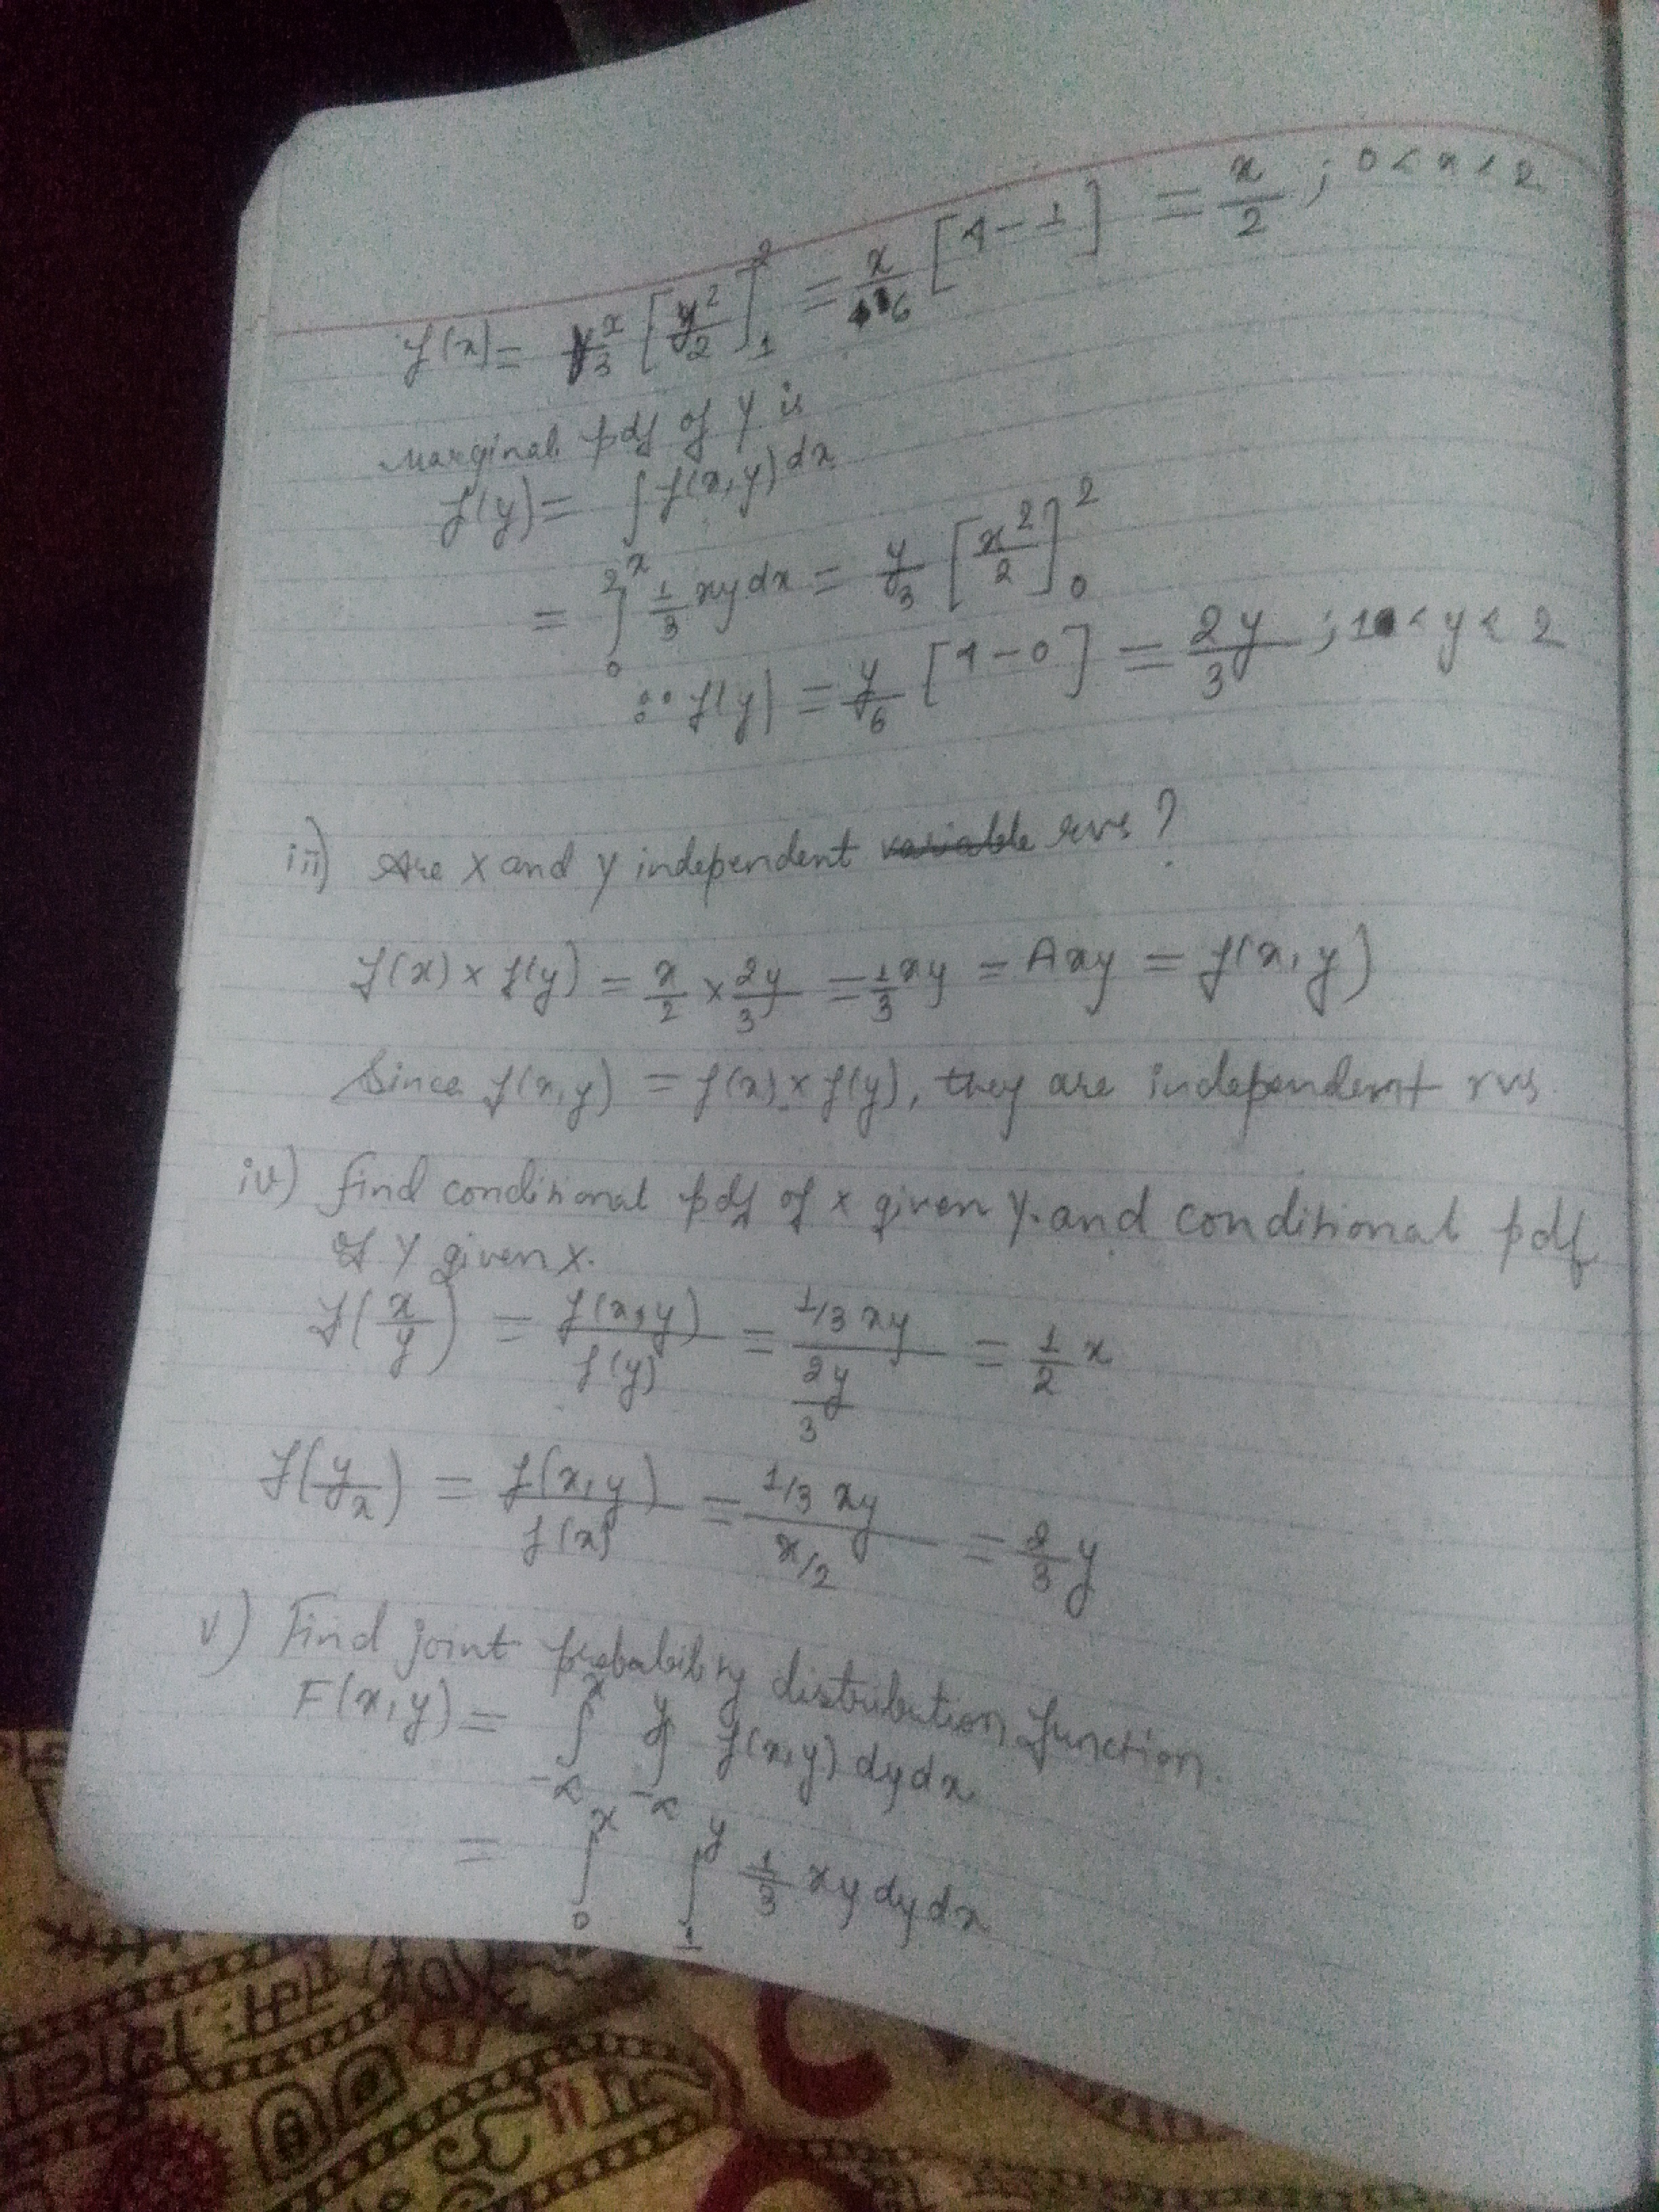 f(x) = x/3 [y²/2]₁² = x/6 [4 - 1] = x/2 ; 0 < x < 2
Marginal pdf of Y is
f(y) = ∫ f(x, y) dx
= ∫₀² 1/3 xy dx = y/3 [x²/2]₀²
∴ f(y) = y/6 [4 - 0] = 2y/3 ; 1 < y < 2
iii) Are X and Y independent variable rvs ?
f(x) × f(y) = x/2 × 2y/3 = 1/3 xy = Axy = f(x, y)
Since f(x, y) = f(x) × f(y), they are independent rvs
iv) find conditional pdf of x given Y. and conditional pdf
of Y given X.
f(x/y) = f(x, y)/f(y) = (1/3 xy)/(2y/3) = 1/2 x
f(y/x) = f(x, y)/f(x) = (1/3 xy)/(x/2) = 2/3 y
v) Find joint probability distribution function.
F(x, y) = ∫_{-∞}^{x} ∫_{-∞}^{y} f(x, y) dy dx
= ∫₀ˣ ∫₁ʸ 1/3 xy dy dx